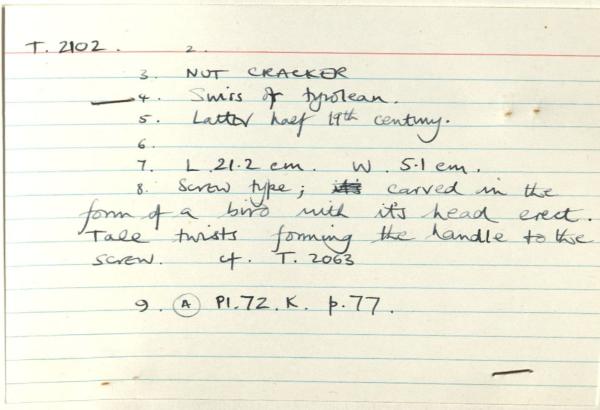 T. 2102. 2.
3. NUT CRACKER
4. Swiss or tyrolean.
5. Latter half 19th century.
6.
7. L. 21.2 cm. W. 5.1 cm.
8. Screw type; its carved in the
form of a bird with it's head erect.
Tale twists forming the handle to the
screw. cf. T. 2063
9. (A) Pl. 72. K. p. 77.